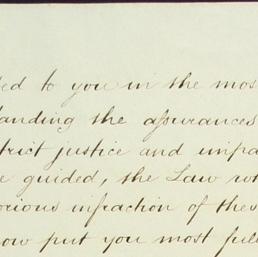 ed to you in the mos
anding the assurances
trict justice and impa
e guided, the Law
orious infraction of thes
now put you most full